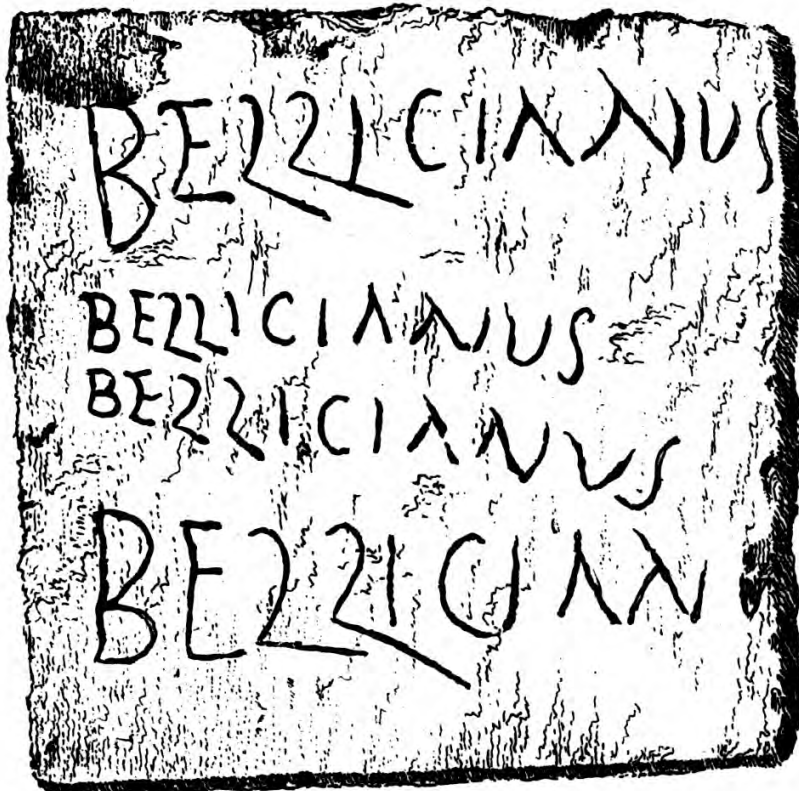 BELLICIANUS
BELLICIANUS
BELLICIANUS
BELLICIAN